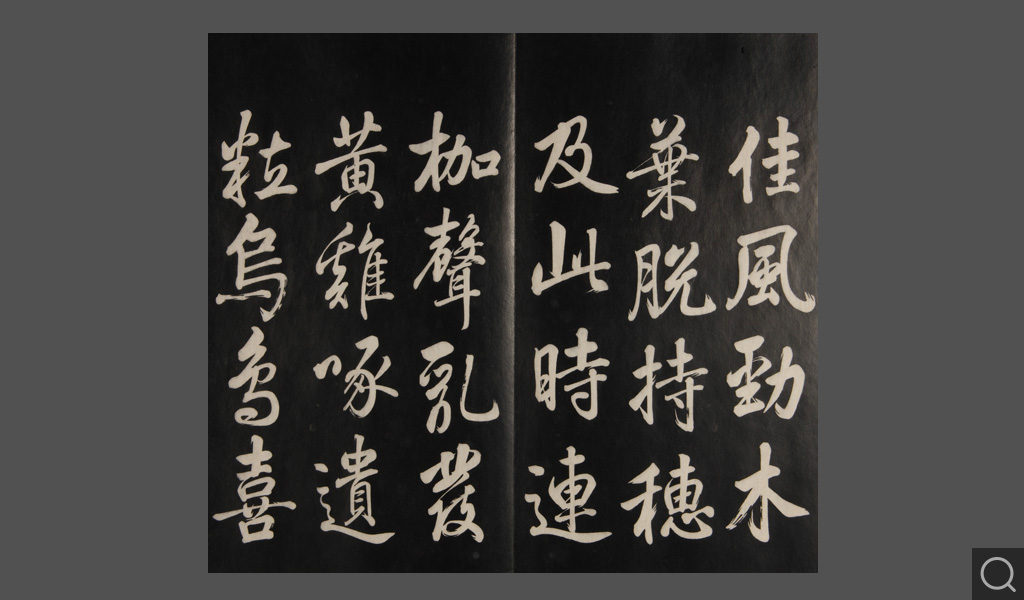 佳風勁木
葉脱持穗
及此時連
枷聲亂發
黃雞啄遺
粒烏鳥喜